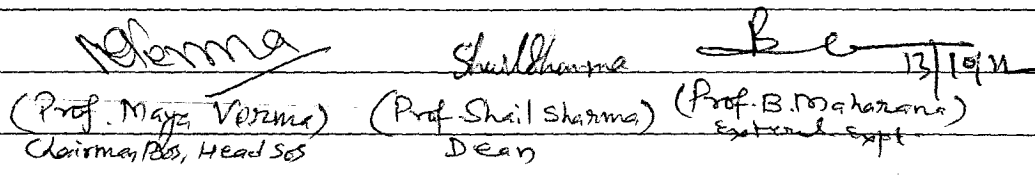 Verma ShailSharma B 13/10/21
(Prof. Maya Verma) (Prof. Shail Sharma) (Prof. B. Maharana)
Chairman, Bos, Head SoS Dean External Expt.